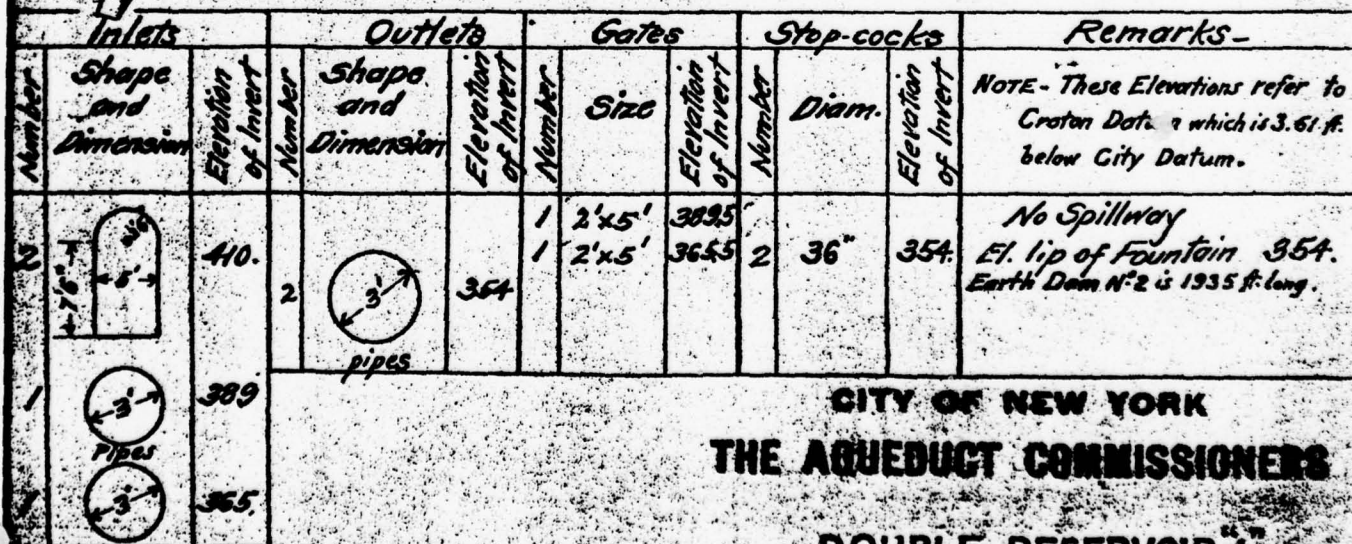 Inlets Outlets Gates Stop-cocks Remarks-
Number Shape and Dimension Elevation of Invert Number Shape and Dimension Elevation of Invert Number Size Elevation of Invert Number Diam. Elevation of Invert
NOTE - These Elevations refer to
Croton which is 3.61 ft.
below City Datum.
1 2'x5' 389.5 No Spillway
2 5' 7'6" 2'6" 410. 1 2'x5' 365.5 2 36" 354. El. lip of Fountain 354.
2 3' 354 Earth Dam Nº2 is 1935 ft. long.
pipes
1 3' 389
Pipes
1 3' 365.
CITY OF NEW YORK
THE AQUEDUCT COMMISSIONERS
DOUBLE RESERVOIR "I"